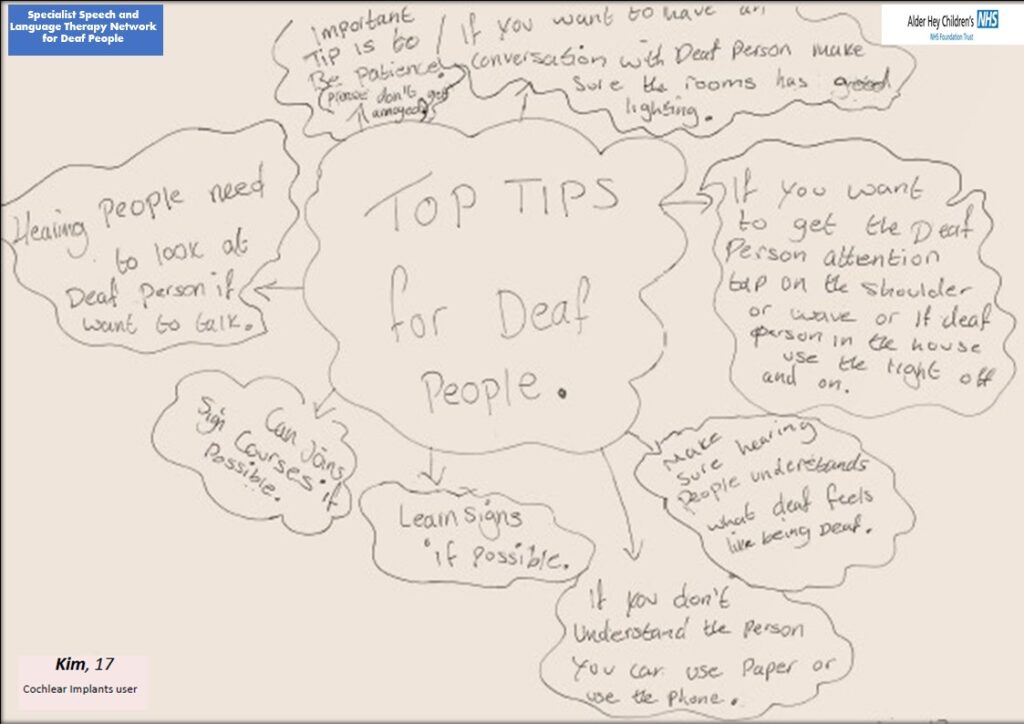 Specialist Speech and
Language Therapy Network
for Deaf People
Alder Hey Children's NHS
NHS Foundation Trust
Important
Tip is to
Be Patience!
(please don't get
annoyed)
If you want to have an
conversation with Deaf Person make
sure the rooms has good
lighting.
TOP TIPS
for Deaf
People.
Hearing People need
to look at
Deaf Person if
want to talk.
If you want
to get the Deaf
Person attention
tap on the shoulder
or wave or if deaf
person in the house
use the light off
and on.
Can joins
Sign Courses if
Possible.
Learn signs
if possible.
Make
sure hearing
People understands
what deaf feels
like being Deaf.
If you don't
Understand the Person
You can use Paper or
use the Phone.
Kim, 17
Cochlear Implants user